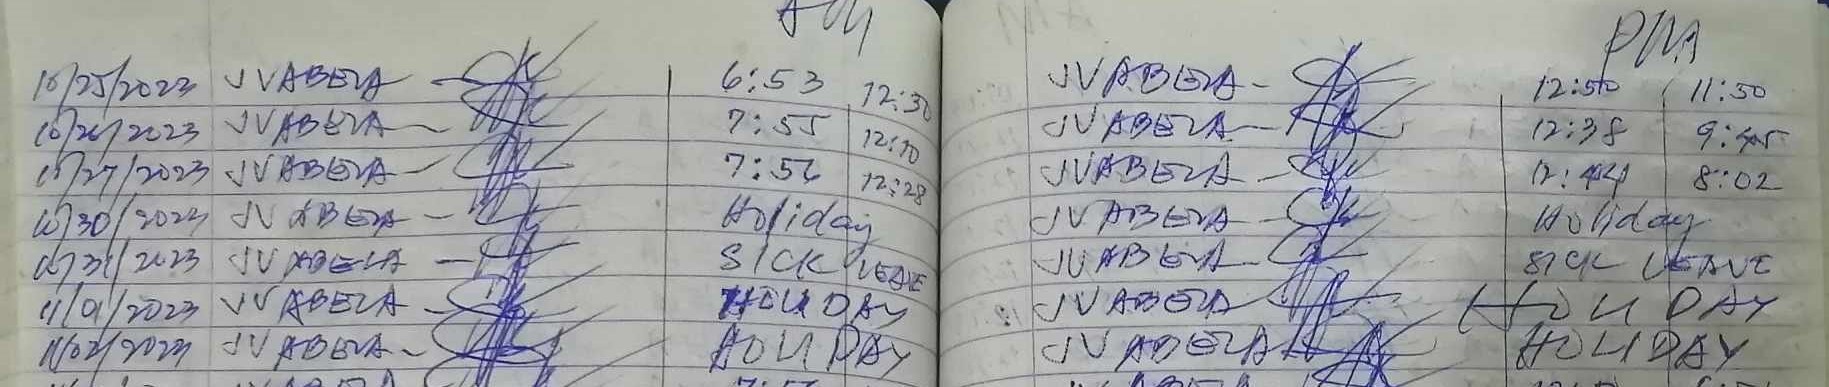 AM PM
10/25/2023 JVABELA 6:53 12:30 JVABELA 12:50 11:50
10/26/2023 JVABELA 7:55 12:10 JVABELA 12:38 9:45
10/27/2023 JVABELA 7:56 12:28 JVABELA 12:44 8:02
10/30/2023 JVABELA Holiday JVABELA Holiday
10/31/2023 JVABELA SICK LEAVE JVABELA SICK LEAVE
11/01/2023 JVABELA HOLIDAY JVABELA HOLIDAY
11/02/2023 JVABELA HOLIDAY JVABELA HOLIDAY